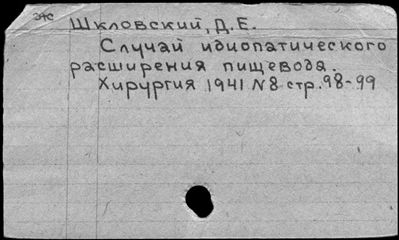 эж
Шкловский, Д.Е.
Случай идиопатического
расширения пищевода.
Хирургия 1941 N8 стр. 98-99